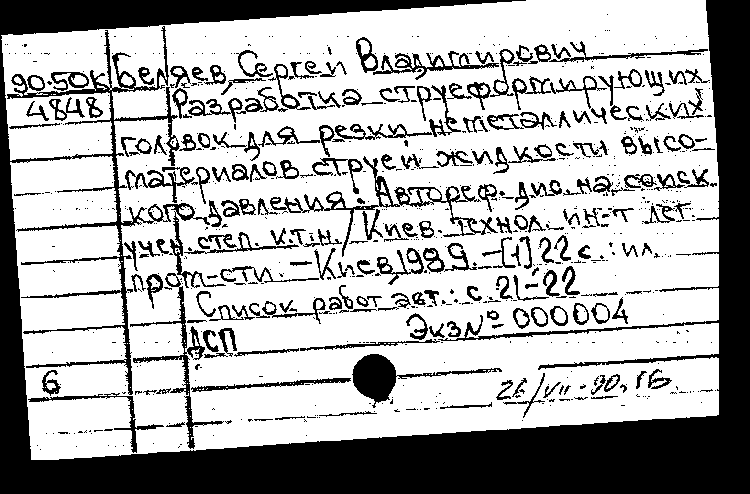 90-50К Беляев, Сергей Владимирович
4848 Разработка струеформирующих
головок для резки неметаллических
материалов струей жидкости высо-
кого давления: Автореф. дис. на соиск.
учен. степ. к.т.н./Киев. технол. ин-т лег.
пром-сти. - Киев, 1989. - [1] 22 с.: ил.
Список работ авт.: с. 21-22
ДСП Экз № 000004
6
26/VII-90, ГБ.